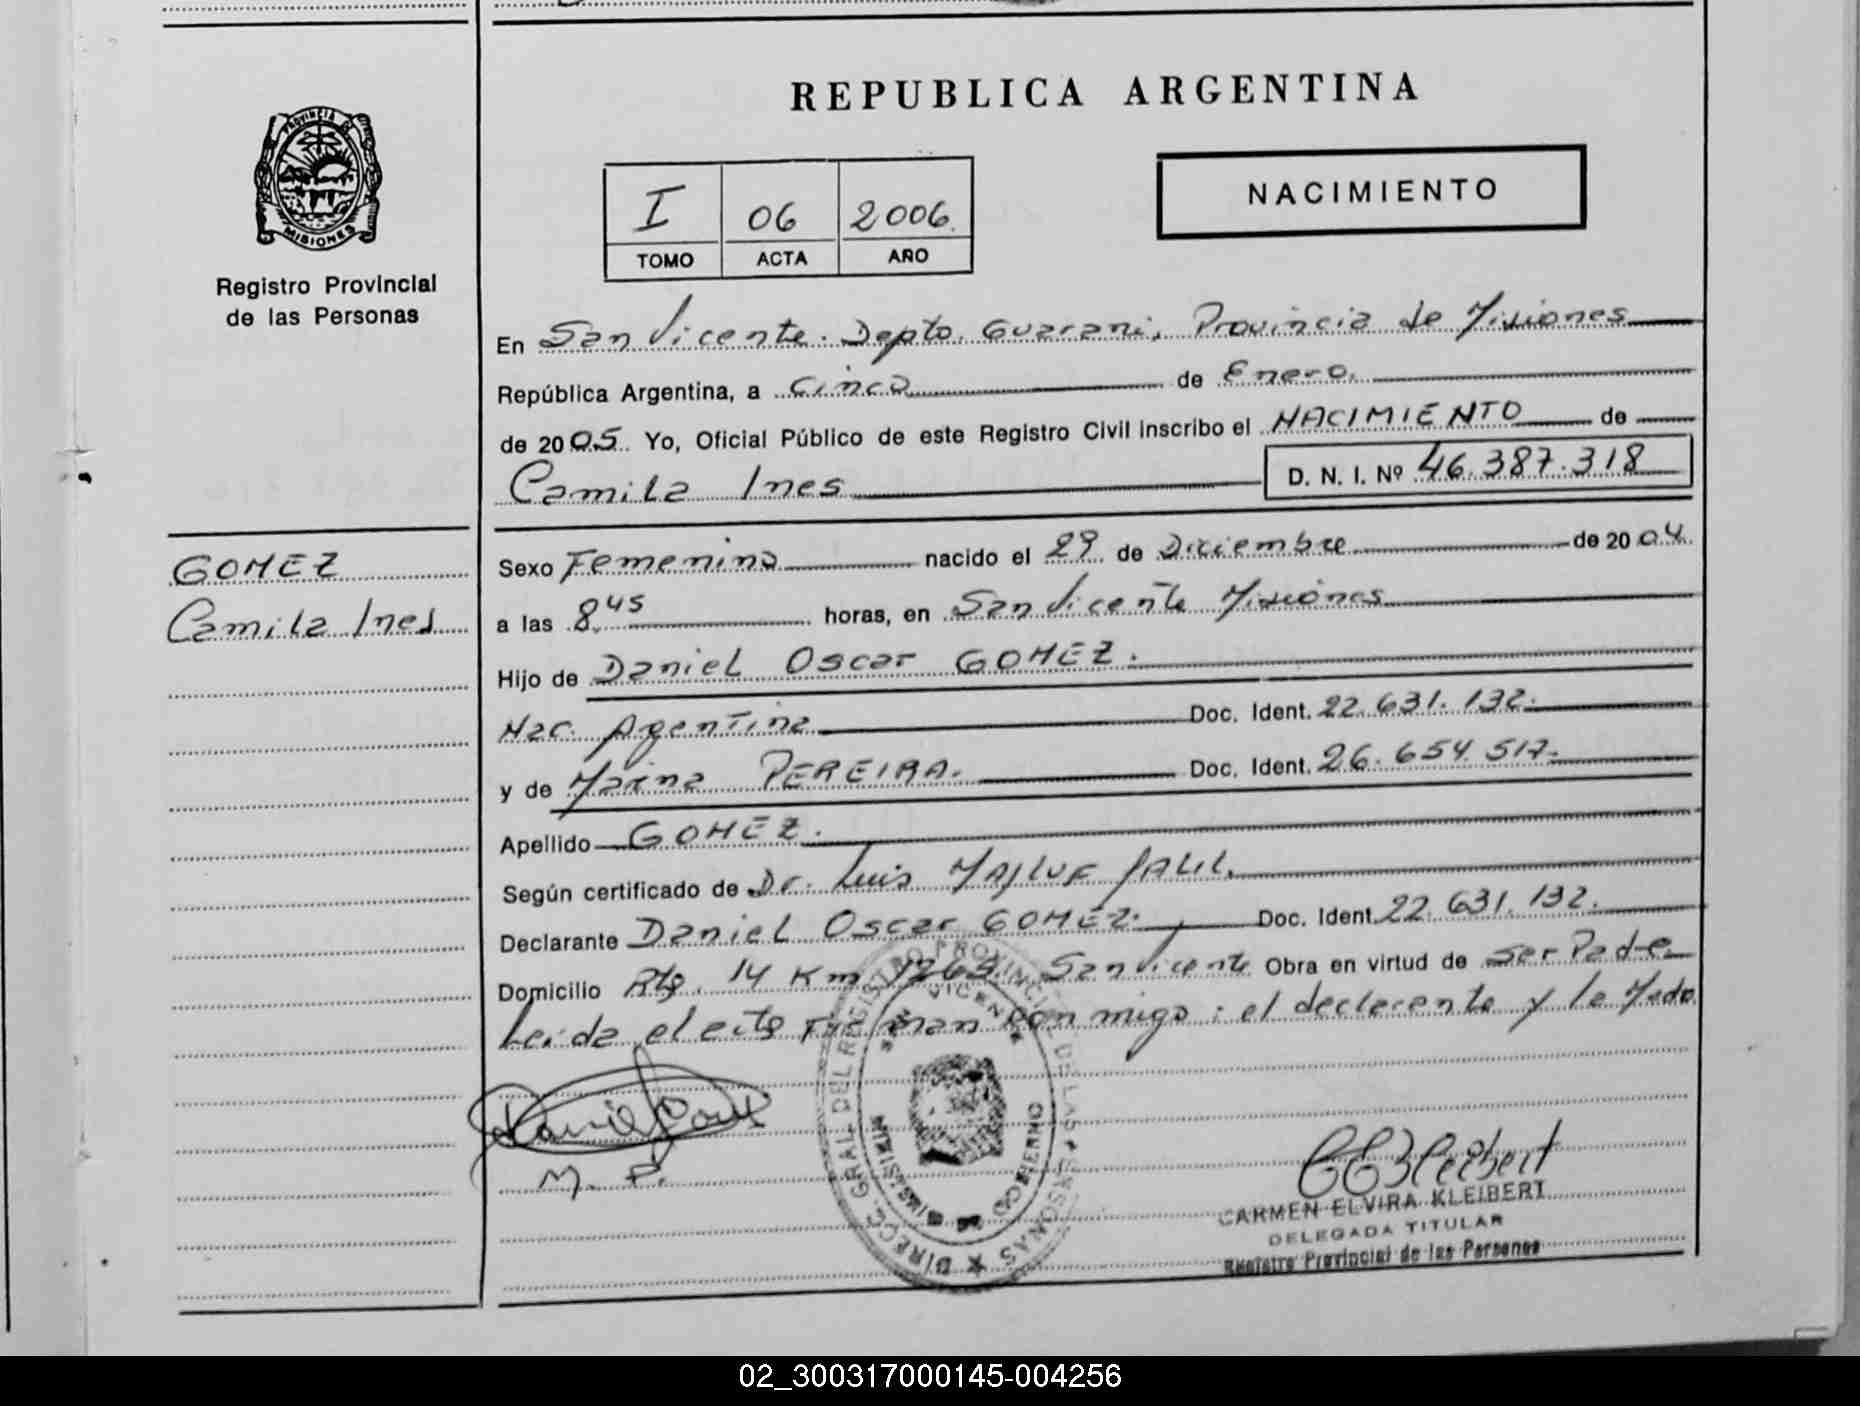 REPUBLICA ARGENTINA
PROVINCIA DE
MISIONES
Registro Provincial
de las Personas
I 06 2006.
TOMO ACTA AÑO
NACIMIENTO
En San Vicente. Depto. Guarani, Provincia de Misiones
República Argentina, a Cinco de Enero.
de 2005. Yo, Oficial Público de este Registro Civil inscribo el NACIMIENTO de
Camila Ines D. N. I. Nº 46.387.318
GOMEZ
Camila Ines
Sexo Femenino nacido el 29 de Diciembre de 2004.
a las 8,45 horas, en San Vicente Misiones
Hijo de Daniel Oscar GOMEZ.
Nac. Agentina Doc. Ident. 22.631.132.
y de PEREIRA. Doc. Ident. 26.654.517.
Apellido GOMEZ.
Según certificado de Dr. Luis
Declarante Daniel Oscar GOMEZ. Doc. Ident. 22.631.132.
Domicilio 14 Km San Vicente Obra en virtud de ser Padre
Leida el acta Firman con migo: el declarante y la
M. P.
DIRECC. GRAL. DEL REGISTRO PROVINCIAL DE LAS PERSONAS
VICENTE
CARMEN ELVIRA KLEIBERT
DELEGADA TITULAR
Registro Provincial de las Personas
02_300317000145-004256